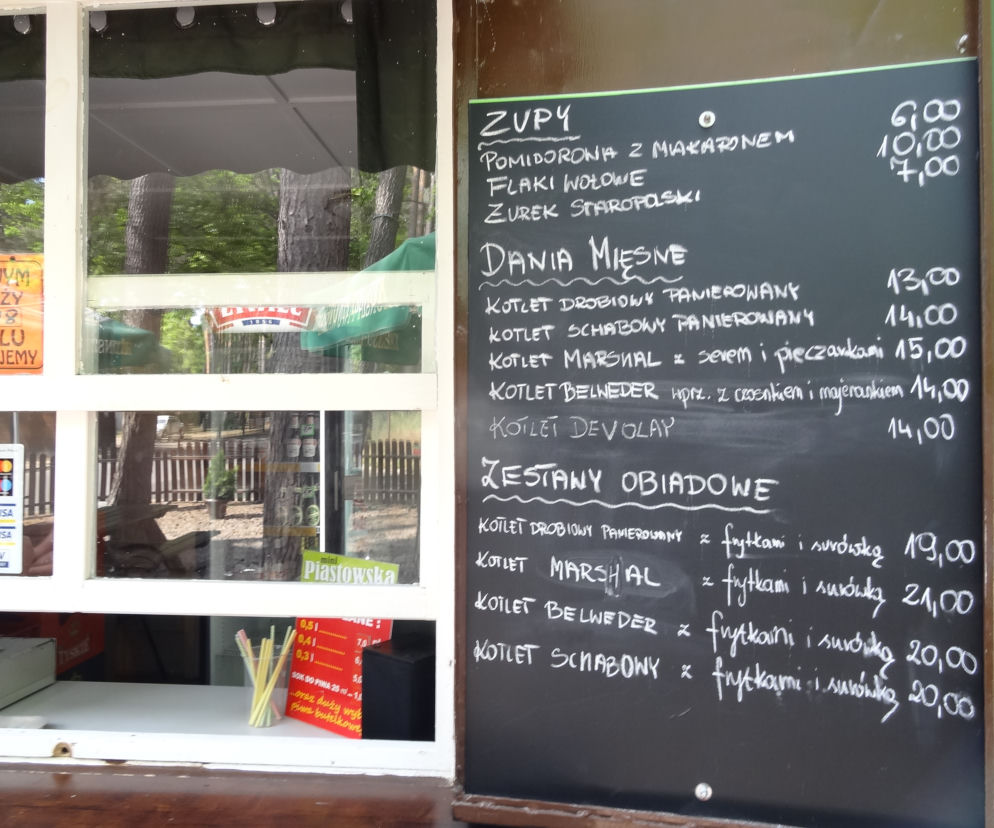 ZUPY
POMIDOROWA Z MAKARONEM 6,00
FLAKI WOŁOWE 10,00
ŻUREK STAROPOLSKI 7,00
DANIA MIĘSNE
KOTLET DROBIOWY PANIEROWANY 13,00
KOTLET SCHABOWY PANIEROWANY 14,00
KOTLET MARSHAL z serem i pieczarkami 15,00
KOTLET BELWEDER uprz. z czosnkiem i majerankiem 14,00
KOTLET DEVOLAY 14,00
ZESTAWY OBIADOWE
KOTLET DROBIOWY PANIEROWANY z frytkami i surówką 19,00
KOTLET MARSHAL z frytkami i surówką 21,00
KOTLET BELWEDER z frytkami i surówką 20,00
KOTLET SCHABOWY z frytkami i surówką 20,00
mini
Piastowska
0,5 l
0,4 l
0,3 l
SOK DO PIWA 25 ml
...oraz duży wyb
piwa butelkowe
TYSKIE
ŻYWIEC
LU
JEMY